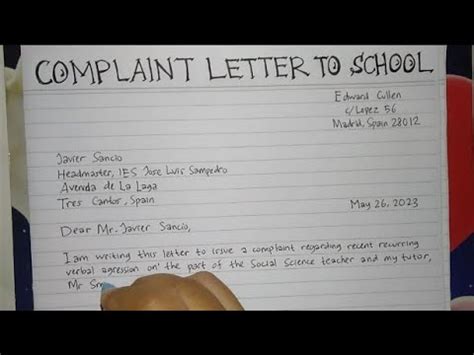 COMPLAINT LETTER TO SCHOOL
Edward Cullen
c/Lopez 56
Madrid, Spain 28012
Javier Sancio
Headmaster, IES Jose Luis Sampedro
Avenida de La Laga
Tres Cantos, Spain
May 26, 2023
Dear Mr. Javier Sancio,
I am writing this letter to issue a complaint regarding recent recurring
verbal agression on the part of the Social Science teacher and my tutor,
Mr Sm